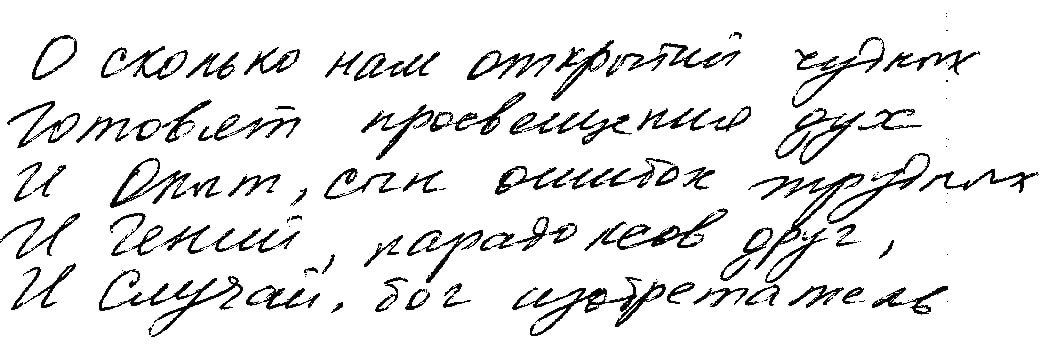 О сколько нам открытий чудных
Готовят просвещения дух
И Опыт, сын ошибок трудных
И Гений, парадоксов друг,
И Случай, бог изобретатель